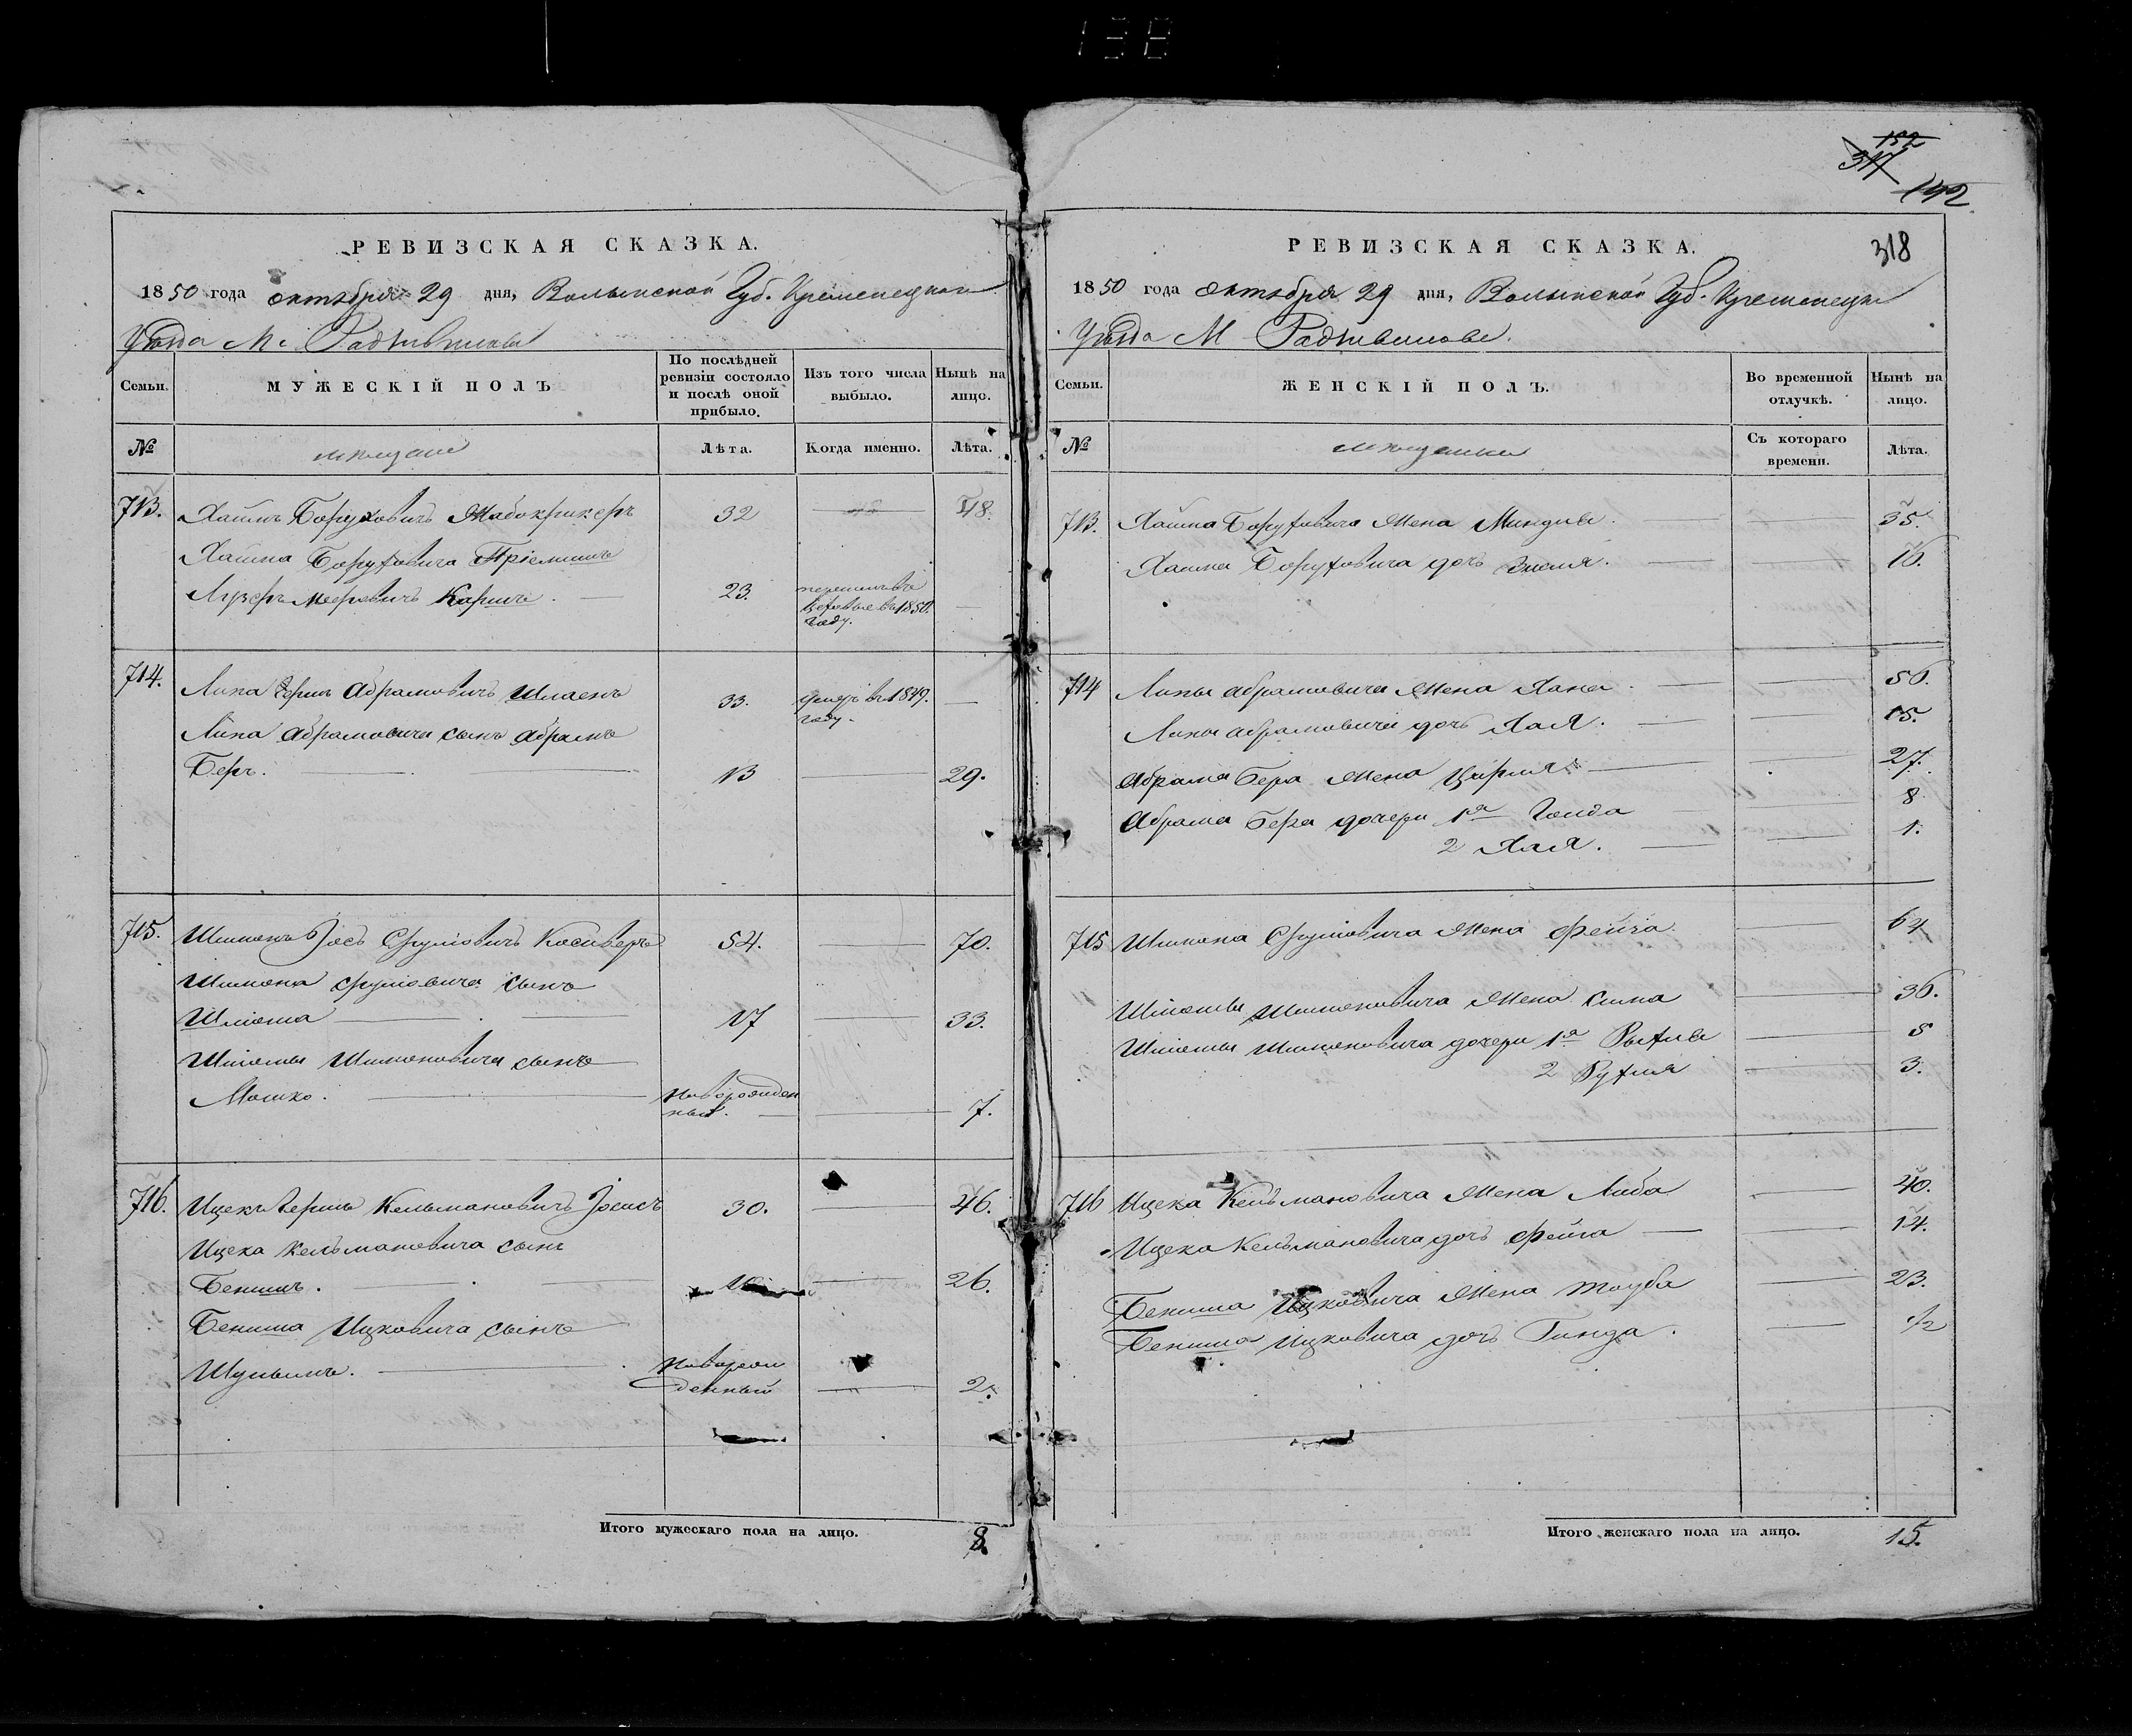 138
РЕВИЗСКАЯ СКАЗКА.
1850 года октября 29 дня, Волынской Губ. Кременецкаго
Уѣзда М. Радзивилова
Семьи.
МУЖЕСКІЙ ПОЛЪ
По послѣдней ревизіи состояло и послѣ оной прибыло.
Изъ того числа выбыло.
Нынѣ на лицо.
№
мѣщане
Лѣта.
Когда именно.
Лѣта.
713. Хаимъ Боруховичъ 32 48.
Хаима Боруховича Пріемышъ
Лузеръ Мееровичъ 23. 1850. году.
714. Липа Гершъ Абрамовичъ Шпаенъ 33. въ 1849. году.
Липа Абрамовича сынъ Абрамъ
Беръ. 13 29.
715. Шимонъ Іосъ Сруліовичъ 54. 70.
Шимона Сруліовича сынъ
Шліома 17 33.
Шліомы Шимоновича сынъ
Мошко. новорожден
ный. 7.
716. Ицекъ Гершъ Кельмановичъ 30. 46.
Ицека Кельмановича сынъ
Бенишъ. 26.
Бениша Ицковича сынъ
Шульимъ. новорож
денный 2.
Итого мужескаго пола на лицо. 8.
152
317
142
318
РЕВИЗСКАЯ СКАЗКА.
1850 года октября 29 дня, Волынской Губ. Кременецка
Уѣзда М Радзивилова.
Семьи.
ЖЕНСКІЙ ПОЛЪ.
Во временной отлучкѣ.
Нынѣ на лицо.
№
мѣщанки
Съ котораго времени.
Лѣта.
713. Хаима Боруховича жена Миндля. 35.
Хаима Боруховича дочь 16.
714 Липы Абрамовича жена Хана. 50.
Липы Абрамовича дочь Хая. 15.
Абрама Бера жена Цирля 27.
Абрама Бера дочери 1я 8
2 Хая. 1.
715 Шимона Сруліовича жена Фейга. 64
Шліомы Шимоновича жена 36.
Шліомы Шимоновича дочери 1я Рыфля 5
2 Рухля 3.
716 Ицека Кельмановича жена Либа 40.
Ицека Кельмановича дочь Фейга 14.
Бениша Ицковича жена Тауба 23.
Бениша Ицковича дочь Гинда. 1/2
Итого женскаго пола на лицо. 15.